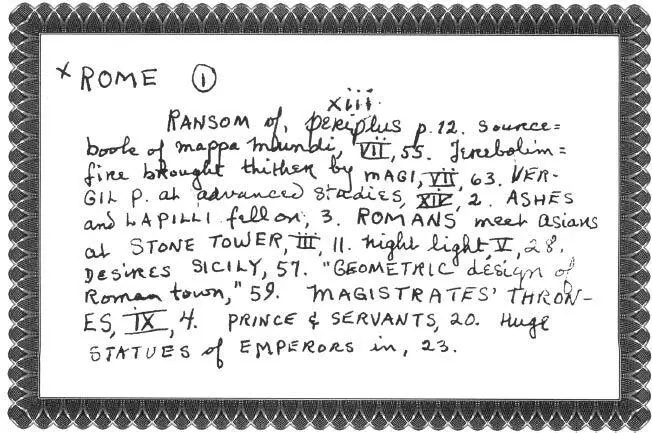 x ROME ①
xiii
RANSOM of, periplus p. 12. source=
book of mappa mundi, VII, 55. Jerebolim=
fire brought thither by MAGI, VII, 63. VER-
GIL P. at advanced studies, XII, 2. ASHES
and LAPILLI fell on, 3. ROMANS meet asians
at STONE TOWER, III, 11. night light, V, 28.
DESIRES SICILY, 57. "GEOMETRIC design of
Roman town," 59. MAGISTRATES' THRON-
ES, IX, 4. PRINCE & SERVANTS, 20. Huge
STATUES of EMPERORS in, 23.